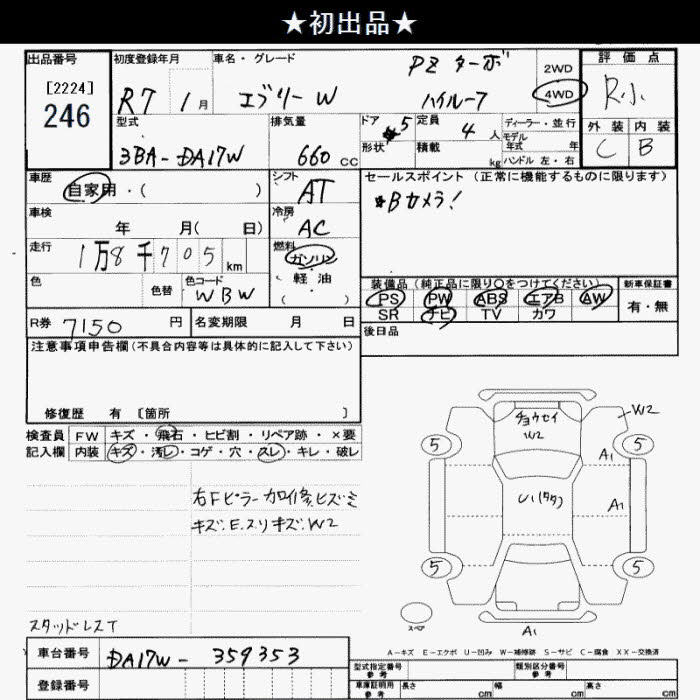 ★初出品★
出品番号
[2224]
246
初度登録年月
R7 1月
車名・グレード
エブリーW
PZ ターボ
ハイルーフ
2WD
4WD
評価点
R小
外装 内装
C B
型式
3BA-DA17W
排気量
660 CC
ドア 5
形状
定員 4 人
積載 kg
ディーラー・並行
モデル年式 年
ハンドル 左・右
車歴
自家用・( )
車検
年 月( 日)
走行
1万8千705km
色
色替
色コード
WBW
シフト
AT
冷房
AC
燃料
ガソリン
軽油
( )
セールスポイント(正常に機能するものに限ります)
*Bカメラ!
装備品(純正品に限り○をつけてください)
PS PW ABS エアB AW
SR ナビ TV カワ
新車保証書
有・無
後日品
R券 7150 円
名変期限 月 日
注意事項申告欄(不具合内容等は具体的に記入して下さい)
修復歴 有 [箇所 ]
検査員記入欄
FW キズ・飛石・ヒビ割・リペア跡・×要
内装 キズ・汚レ・コゲ・穴・スレ・キレ・破レ
右Fピラー カロイ修、ヒズミ
キズ.E.スリキズ.W2
スタッドレスT
チョウセイ
W2
W2
5 5
A1
U1(タタ)
A1
5 5
スペア
A1
A-キズ E-エクボ U-凹み W-補修跡 S-サビ C-腐食 XX-交換済
車台番号
DA17W-359353
登録番号
型式指定番号 参考
類別区分番号 参考
車庫証明用 参考
長さ cm 幅 cm 高さ cm